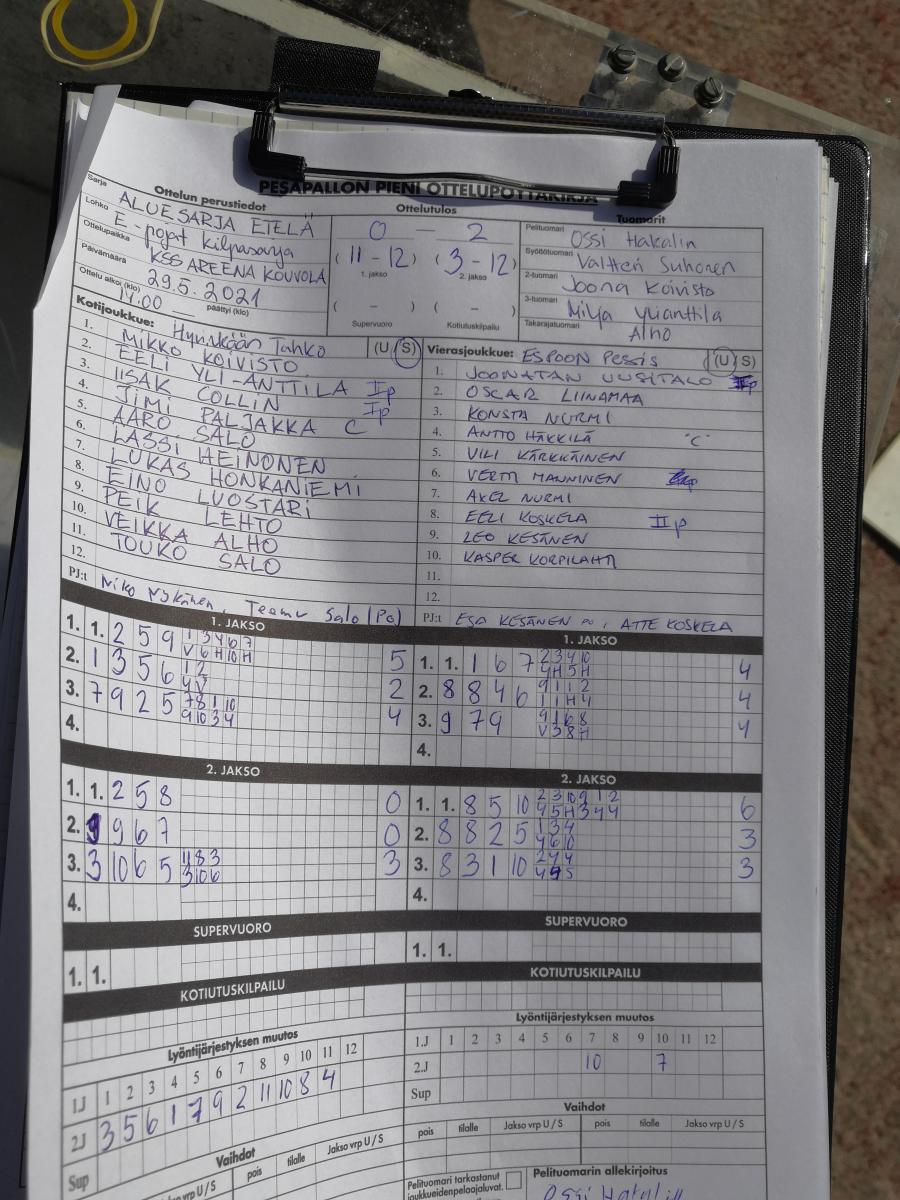 PESÄPALLON PIENI OTTELUPÖYTÄKIRJA
Ottelun perustiedot
Sarja ALUESARJA ETELÄ
Lohko E-pojat kilpasarja
Ottelupaikka KSS AREENA KOUVOLA
Päivämäärä 29.5.2021
Ottelu alkoi (klo) 14:00 päättyi (klo)
Ottelutulos
0 – 2
(11 - 12) (3 - 12)
1. jakso 2. jakso
( - ) ( - )
Supervuoro Kotiutuskilpailu
Tuomarit
Pelituomari Ossi Hakalin
Syöttötuomari Valtteri Suhonen
2-tuomari Joona Koivisto
3-tuomari Milja Ylianttila
Takarajatuomari Alho
Kotijoukkue: Hyvinkään Tahko (U) (S)
1. MIKKO KOIVISTO
2. EELI YLI-ANTTILA Ip
3. IISAK COLLIN Ip
4. JIMI PALJAKKA C
5. AARO SALO
6. LASSI HEINONEN
7. LUKAS HONKANIEMI
8. EINO LUOSTARI
9. PEIK LEHTO
10. VEIKKA ALHO
11. TOUKO SALO
12.
PJ:t Niko Nykänen, Teemu Salo (Po)
Vierasjoukkue: ESPOON Pesis (U) (S)
1. JOONATAN UUSITALO
2. OSCAR LIINAMAA
3. KONSTA NURMI
4. ANTTO HÄKKILÄ "C"
5. VILI KÄRKKÄINEN
6. VERTTI MANNINEN
7. AXEL NURMI
8. EELI KOSKELA II p
9. LEO KESÄNEN
10. KASPER KORPILAHTI
11.
12.
PJ:t ESA KESÄNEN PJ, ATTE KOSKELA
1. JAKSO
1. 1. 2 5 9 1 3 4 6 7 5
V 6 H 10 H
2. 1 3 5 6 1 2 2
4 V
3. 7 9 2 5 7 8 1 10 4
9 10 3 4
4.
1. JAKSO
1. 1. 1 6 7 2 3 4 10 4
4 H 5 H
2. 8 8 4 6 9 1 1 2 4
1 1 H 4
3. 9 7 9 9 1 6 8 4
V 3 8 H
4.
2. JAKSO
1. 1. 2 5 8 0
2. 9 9 6 7 0
3. 3 10 6 5 11 8 3 3
3 10 6
4.
2. JAKSO
1. 1. 8 5 10 2 3 10 9 1 2 6
4 5 H 3 4 4
2. 8 8 2 5 1 3 4 3
4 6 10
3. 8 3 1 10 2 4 4 3
4 9 5
4.
SUPERVUORO
1. 1.
SUPERVUORO
1. 1.
KOTIUTUSKILPAILU
KOTIUTUSKILPAILU
Lyöntijärjestyksen muutos
1.J 1 2 3 4 5 6 7 8 9 10 11 12
2.J 3 5 6 1 7 9 2 11 10 8 4
Sup
Lyöntijärjestyksen muutos
1.J 1 2 3 4 5 6 7 8 9 10 11 12
2.J 10 7
Sup
Vaihdot
pois tilalle Jakso vrp U / S
Vaihdot
pois tilalle Jakso vrp U / S pois tilalle Jakso vrp U / S
Pelituomari tarkastanut
joukkueidenpelaajaluvat.
Pelituomarin allekirjoitus